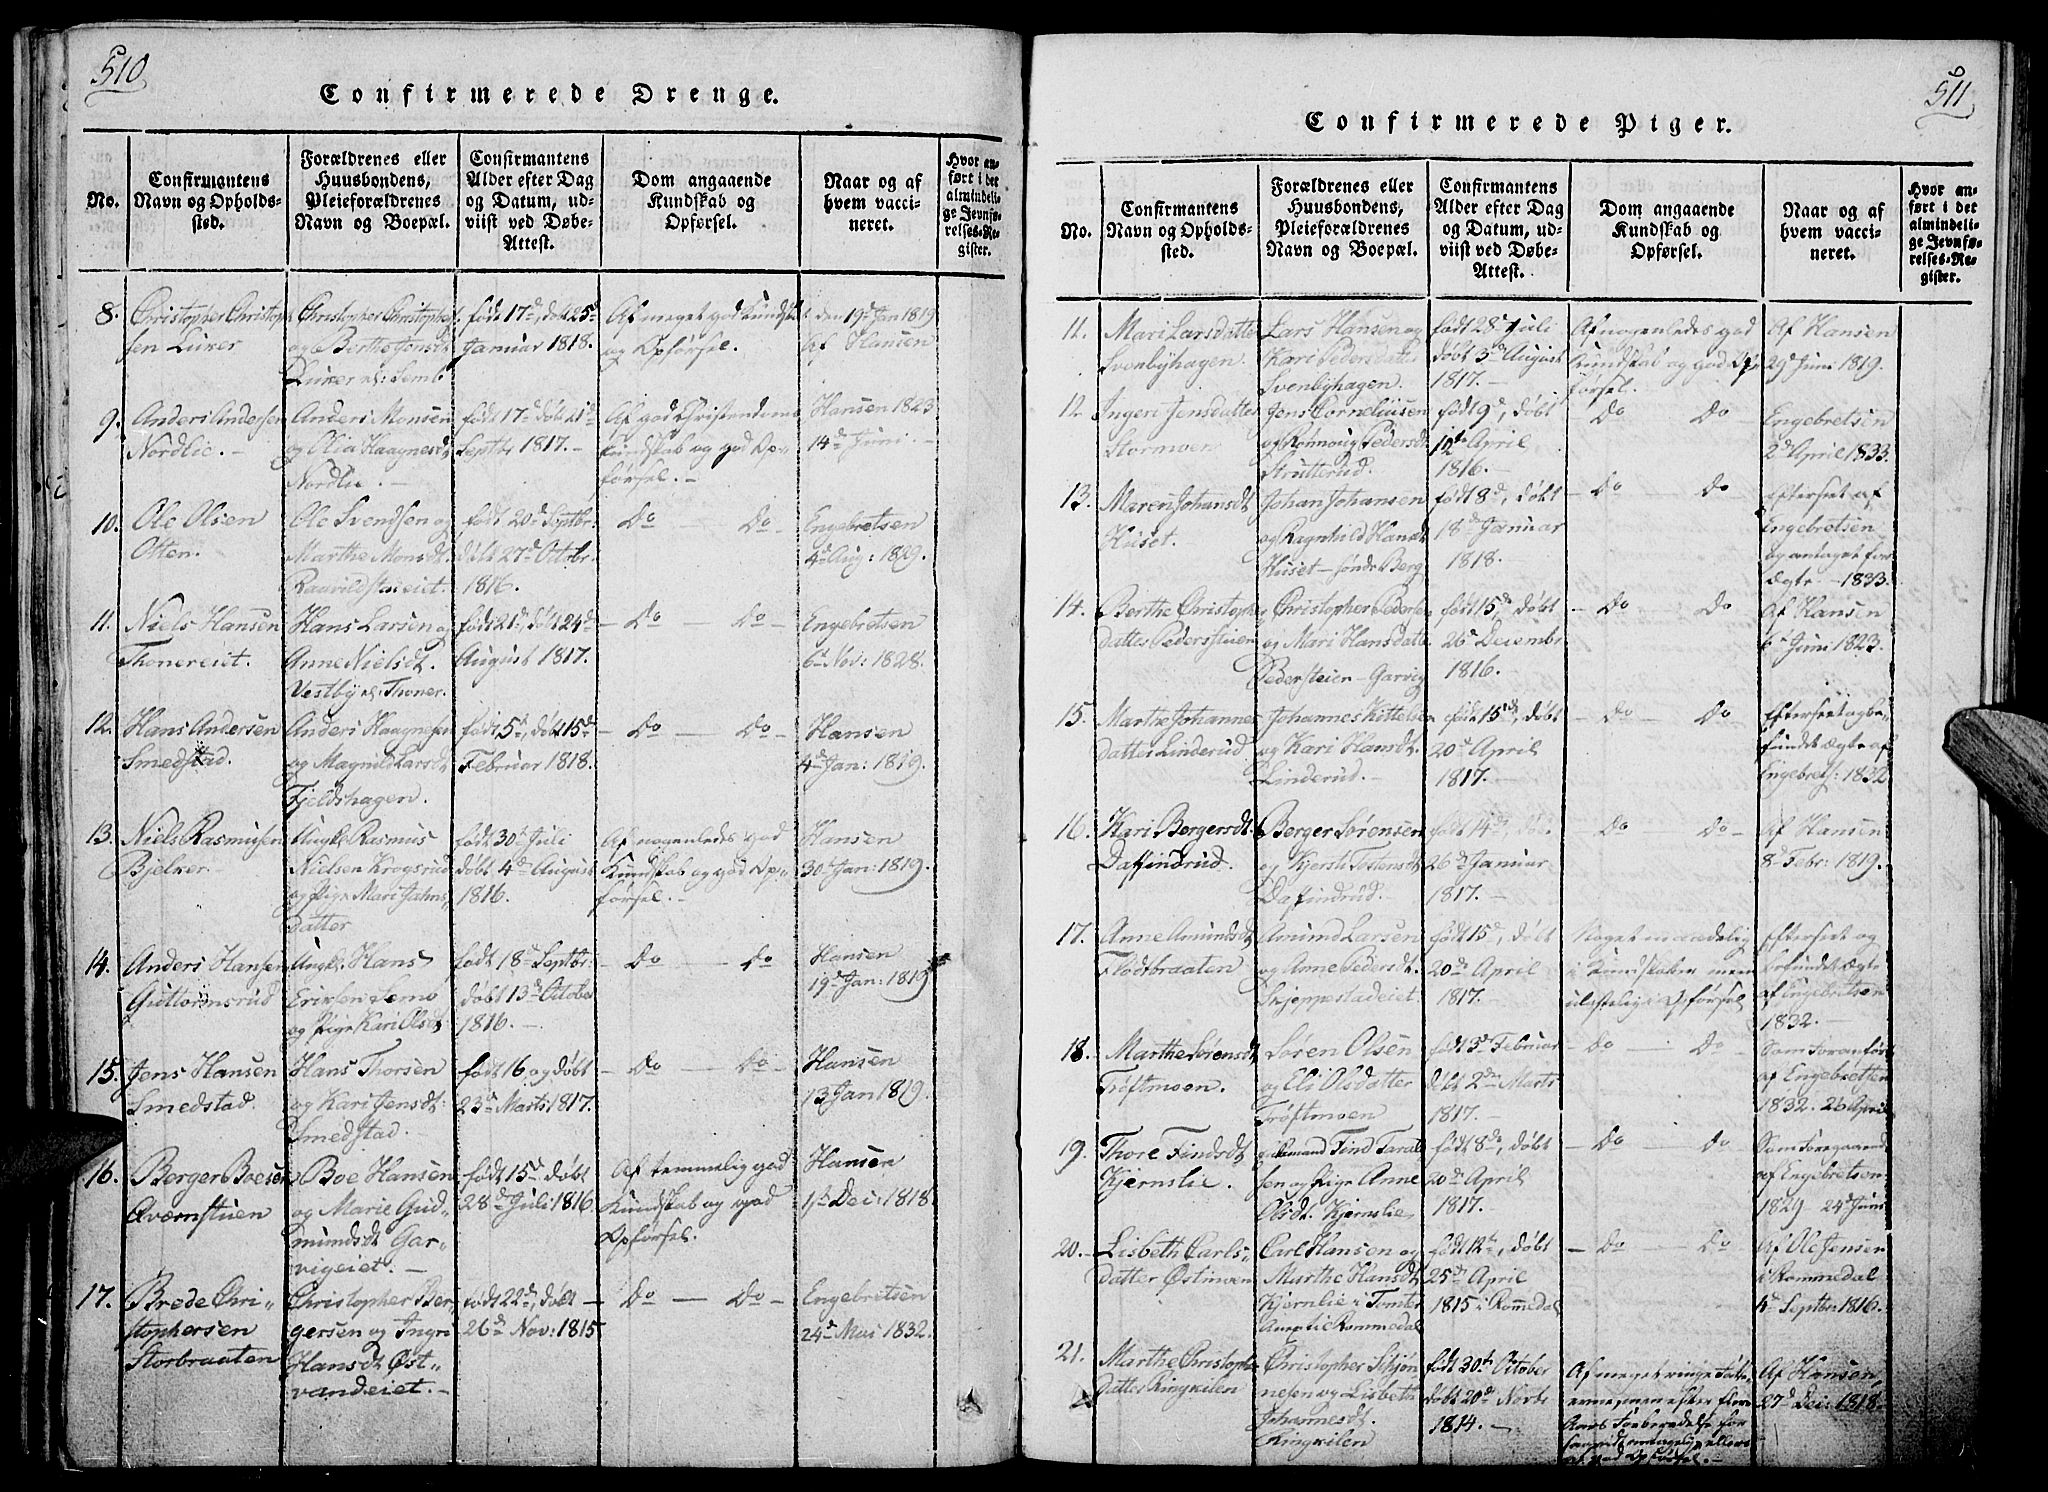 510
Confirmerede Drenge.
No.
Confirmantens
Navn og Opholds-
sted.
Forældrenes eller
Huusbondens,
Pleieforældrenes
Navn og Boepæl.
Confirmantens
Alder efter Dag
og Datum, ud-
viist ved Døbe-
Attest.
Dom angaaende
Kundskab og
Opførsel.
Naar og af
hvem vacci-
neret.
Hvor an-
ført i det
almindeli-
ge Jevnfø-
relses-Re-
gister.
8.
Christopher Christoph
sen Luker
Christopher Christophs
og Berthe Jensdt
Luker
født 17d, døbt 25d
Januar 1818.
Af meget god Kundskab
og Opførsel.
den 19d Jan 1819
Af Hansen
9.
Anders Andersen
Nordlie. -
Anders Monsen
og Olia Haagnesdt
Nordlie. -
født 17d døbt 21d
Septbr 1817. -
Af god Christendoms
kundskab og god Op-
førsel. -
Hansen 1823
14d Juni. -
10.
Ole Olsen
Otten.
Ole Svendsen og
Marthe Monsdt
født 20d Septbr.
døbt 27d Octobr.
1816.
Do - Do -
Engebretsen
4d Aug: 1829.
11.
Niels Hansen
Thonereiet.
Hans Larsen og
Anne Nielsdt.
Vestby Thoner.
født 21d, døbt 24d
August 1817.
- Do - Do -
Engebretsen
6d Nov: 1828.
12.
Hans Andersen
Smedstad.
Anders Haagnesen
og Magnild Larsdt
Fjeldshagen.
født 5t, døbt 15d
Februar 1818.
- Do - Do -
Hansen
4d Jan: 1819.
13.
Niels Rasmussen
Bjelker
Ungk. Rasmus
Nielsen Krogsrud
og Pige Mari Jahns-
datter
født 30t Juli
døbt 4d August
1816.
Af nogenledes god
Kundskab og god Op-
førsel. -
Hansen
30t Jan: 1819.
14.
Anders Hansen
Guttormsrud
Ungk. Hans
Eriksen Lemo
og Pige Kari Olsdt
født 18d Septbr:
døbt 13d October
1816. -
- Do - Do
Hansen
19d Jan: 1819
15.
Jens Hansen
Smedstad.
Hans Thorsen
og Kari Jensdt.
Smedstad.
født 16 og døbt
23d Marts 1817.
- Do - Do
Hansen
13 Jan 1819.
16.
Berger Boesen
Qværnstuen
Boe Hansen
og Marie Gud-
mundsdt Gar-
vigeiet. -
født 15d døbt
28d Juli 1816
Af temmelig god
Kundskab og god
Opførsel.
Hansen
1ste Dec: 1818
17.
Brede Chri-
stophersen
Storbraaten
Christopher Ber-
gersen og Ingri
Hansdt Øst-
vandeiet. -
født 22d, døbt
26d Nov: 1815
- Do - Do -
Engebretsen
24d Mai 1832.
511
Confirmerede Piger.
No.
Confirmantens
Navn og Opholds-
sted.
Forældrenes eller
Huusbondens,
Pleieforældrenes
Navn og Boepæl.
Confirmantens
Alder efter Dag
og Datum, ud-
viist ved Døbe-
Attest.
Dom angaaende
Kundskab og
Opførsel.
Naar og af
hvem vacci-
neret.
Hvor an-
ført i det
almindeli-
ge Jevnfø-
relses-Re-
gister.
11.
Mari Larsdatter
Svenbyhagen.
Lars Hansen og
Kari Pedersdatter
Svenbyhagen.
født 28d Juli
døbt 3d August
1817. -
Af nogenledes god
Kundskab og god Op-
førsel. -
Af Hansen
29 Juni 1819.
12.
Ingeri Jensdatter
Stormoen
Jens Corneliusen
og Rønnoug Pedersdt.
Strutterud.
født 9d, døbt
12te April
1816. -
Do - Do
Engebretsen
2d April 1833.
13.
Maren Johansdt
Huset.
Johan Johansen
og Ragnhild Hansdt
Huset - søndr Berg
født 8d, døbt
18d Januar
1818.
- Do - Do
Efterseet af
Engebretsen
og antaget for
ægte - 1833.
14.
Berthe Christophers
datter Pedersstuen
Christopher Pedersen
og Mari Hansdatter
Pederstuen - Garvig
født 15de, døbt
26d Decembr
1816. -
- Do - Do
Af Hansen
6d Juni 1823.
15.
Marthe Johannes
datter Linderud
Johannes Kittelsen
og Kari Hansdt.
Linderud. -
født 15de, døbt
20d April
1817. -
- Do - Do
Efterseet og be-
fundet ægte af
Engebrets: 1832
16.
Kari Bergersdt.
Daffindrud.
Berger Sørensen
og Kjersti Tostensdt
Daffindrud. -
født 14de, døbt
26de Januar
1817. -
Do - Do -
Af Hansen
8d Febr: 1819.
17.
Anne Amundsdt
Flodtbraaten
Amund Larsen
og Anne Pedersdt.
Skjeppestadeiet.
født 15d, døbt
20de April
1817. -
Noget maadelig
i Kundskaber men
ulastelig i Opførsel
Efterseet og
befundet ægte
af Engebretsen
1832. -
18.
Marthe Sørensdt
Trøftmoen.
Søren Olsen
og Eli Olsdatter
Trøftmoen
født 3d Februar
døbt 2den Marts
1817. -
- Do - Do -
Som foranført
af Engebretsen
1832. 26 April
19.
Thore Findsdt
Kjernslie.
Find Taral
sen og Pige Anne
Olsdt. Kjernslie
født 8de, døbt
20de April
1817. -
- Do - Do
Som foregaaende
af Engebretsen
1829 24d Juni
20.
Lisbeth Carls-
datter Østmoen
Carl Hansen og
Marthe Hansdt
Kjernlie i Tomter
Annex i Rommedal
født 12te, døbt
25de April
1815 i Romedal
- Do - Do
Af Ole Jensen
i Rommedal
4d Septbr: 1816.
21.
Marthe Christophers
datter Ringkilen
Christopher Schjøn-
nesen og Lisbeth
Johannesdt.
Ringkilen
født 30te October
døbt 20de Novbr
1814. -
Af meget ringe
evne, men efter flere
Aars Forberedelse for
Af Hansen
27d Dec: 1818.